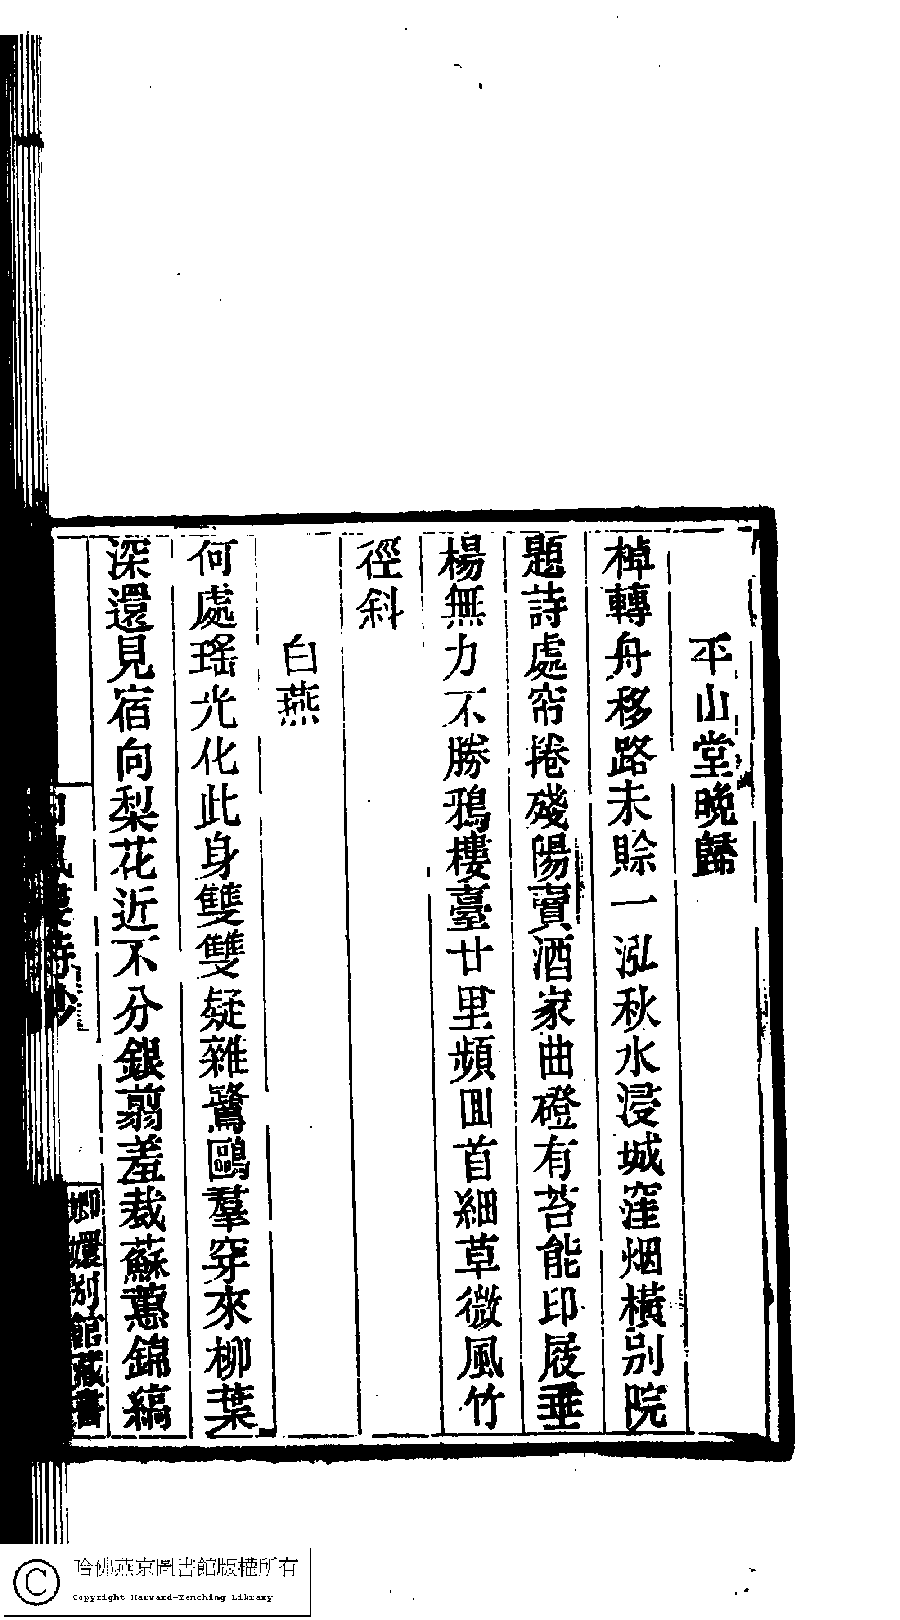 平山堂晚歸
棹轉舟移路未賒一泓秋水浸城窪烟橫別院
題詩處帘捲殘陽賣酒家曲磴有苔能印屐垂
楊無力不勝鴉樓臺廿里頻回首細草微風竹
徑斜
白燕
何處瑤光化此身雙雙疑雜鷺鷗羣穿來柳葉
深還見宿向梨花近不分銀翦羞裁蘇蕙錦縞
樓詩鈔
嫏嬛別館藏書
哈佛燕京圖書館版權所有
Copyright Harvard-Yenching Library